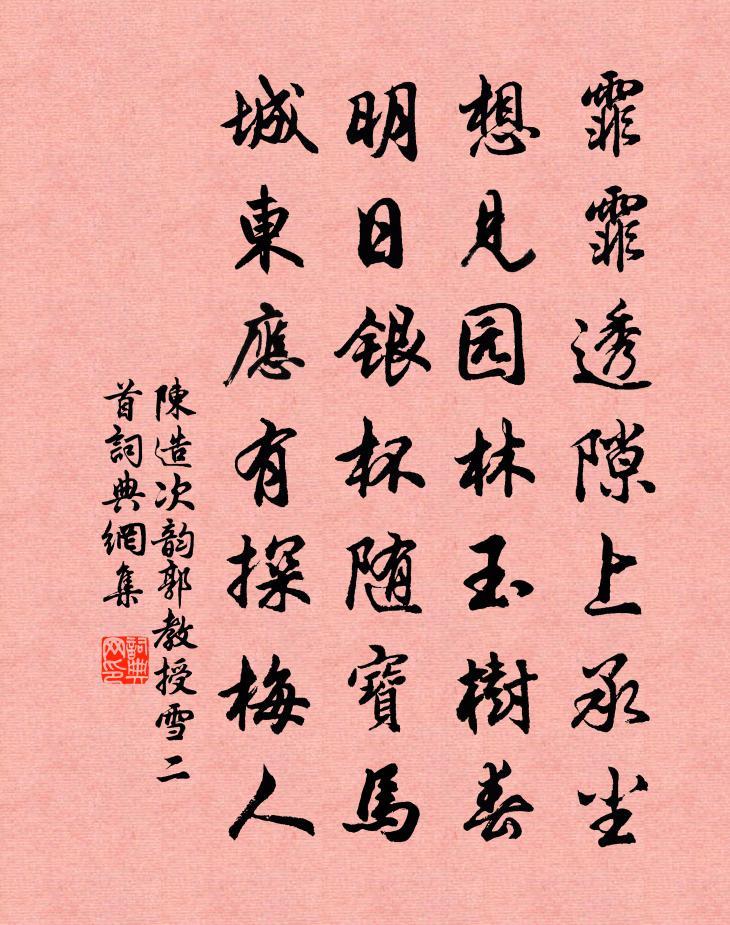 霏霏透隙上承尘
想見园林玉樹春
明日銀杯随寶馬
城東應有探梅人
陳造次韵郭教授雪二
首詞典網集
詞典网印